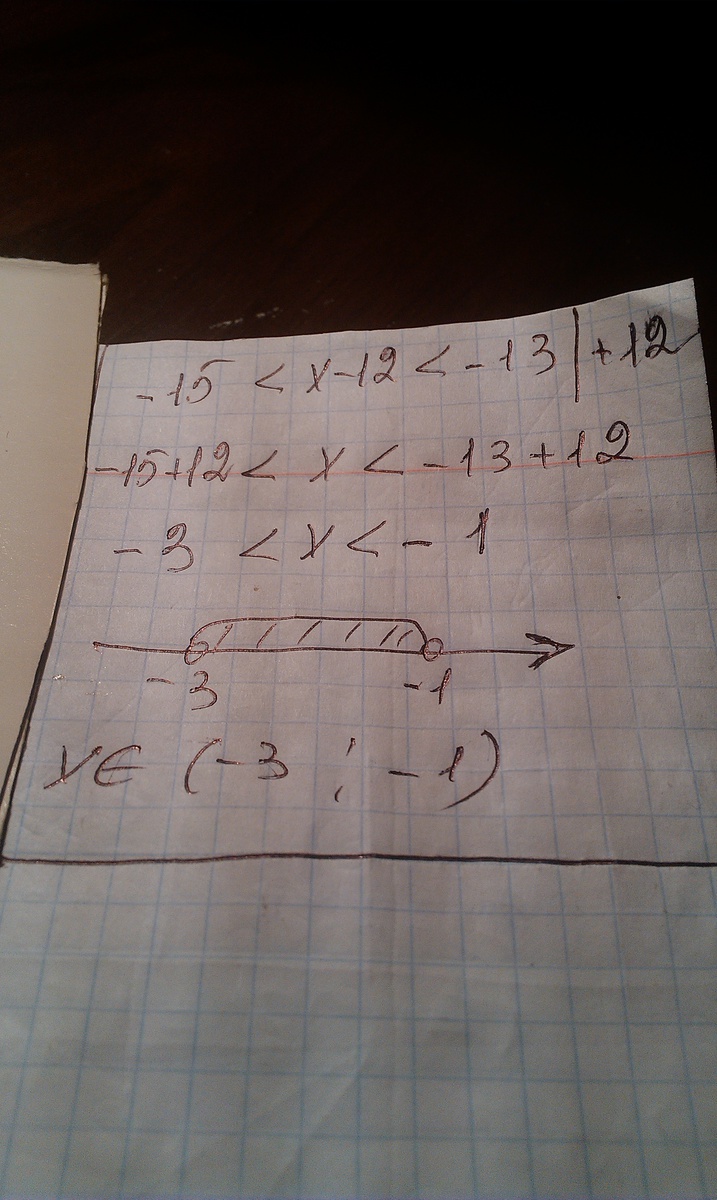 -15 < x-12 < -13 | +12
-15+12 < x < -13+12
-3 < x < -1
-3 -1
x∈ (-3 ; -1)